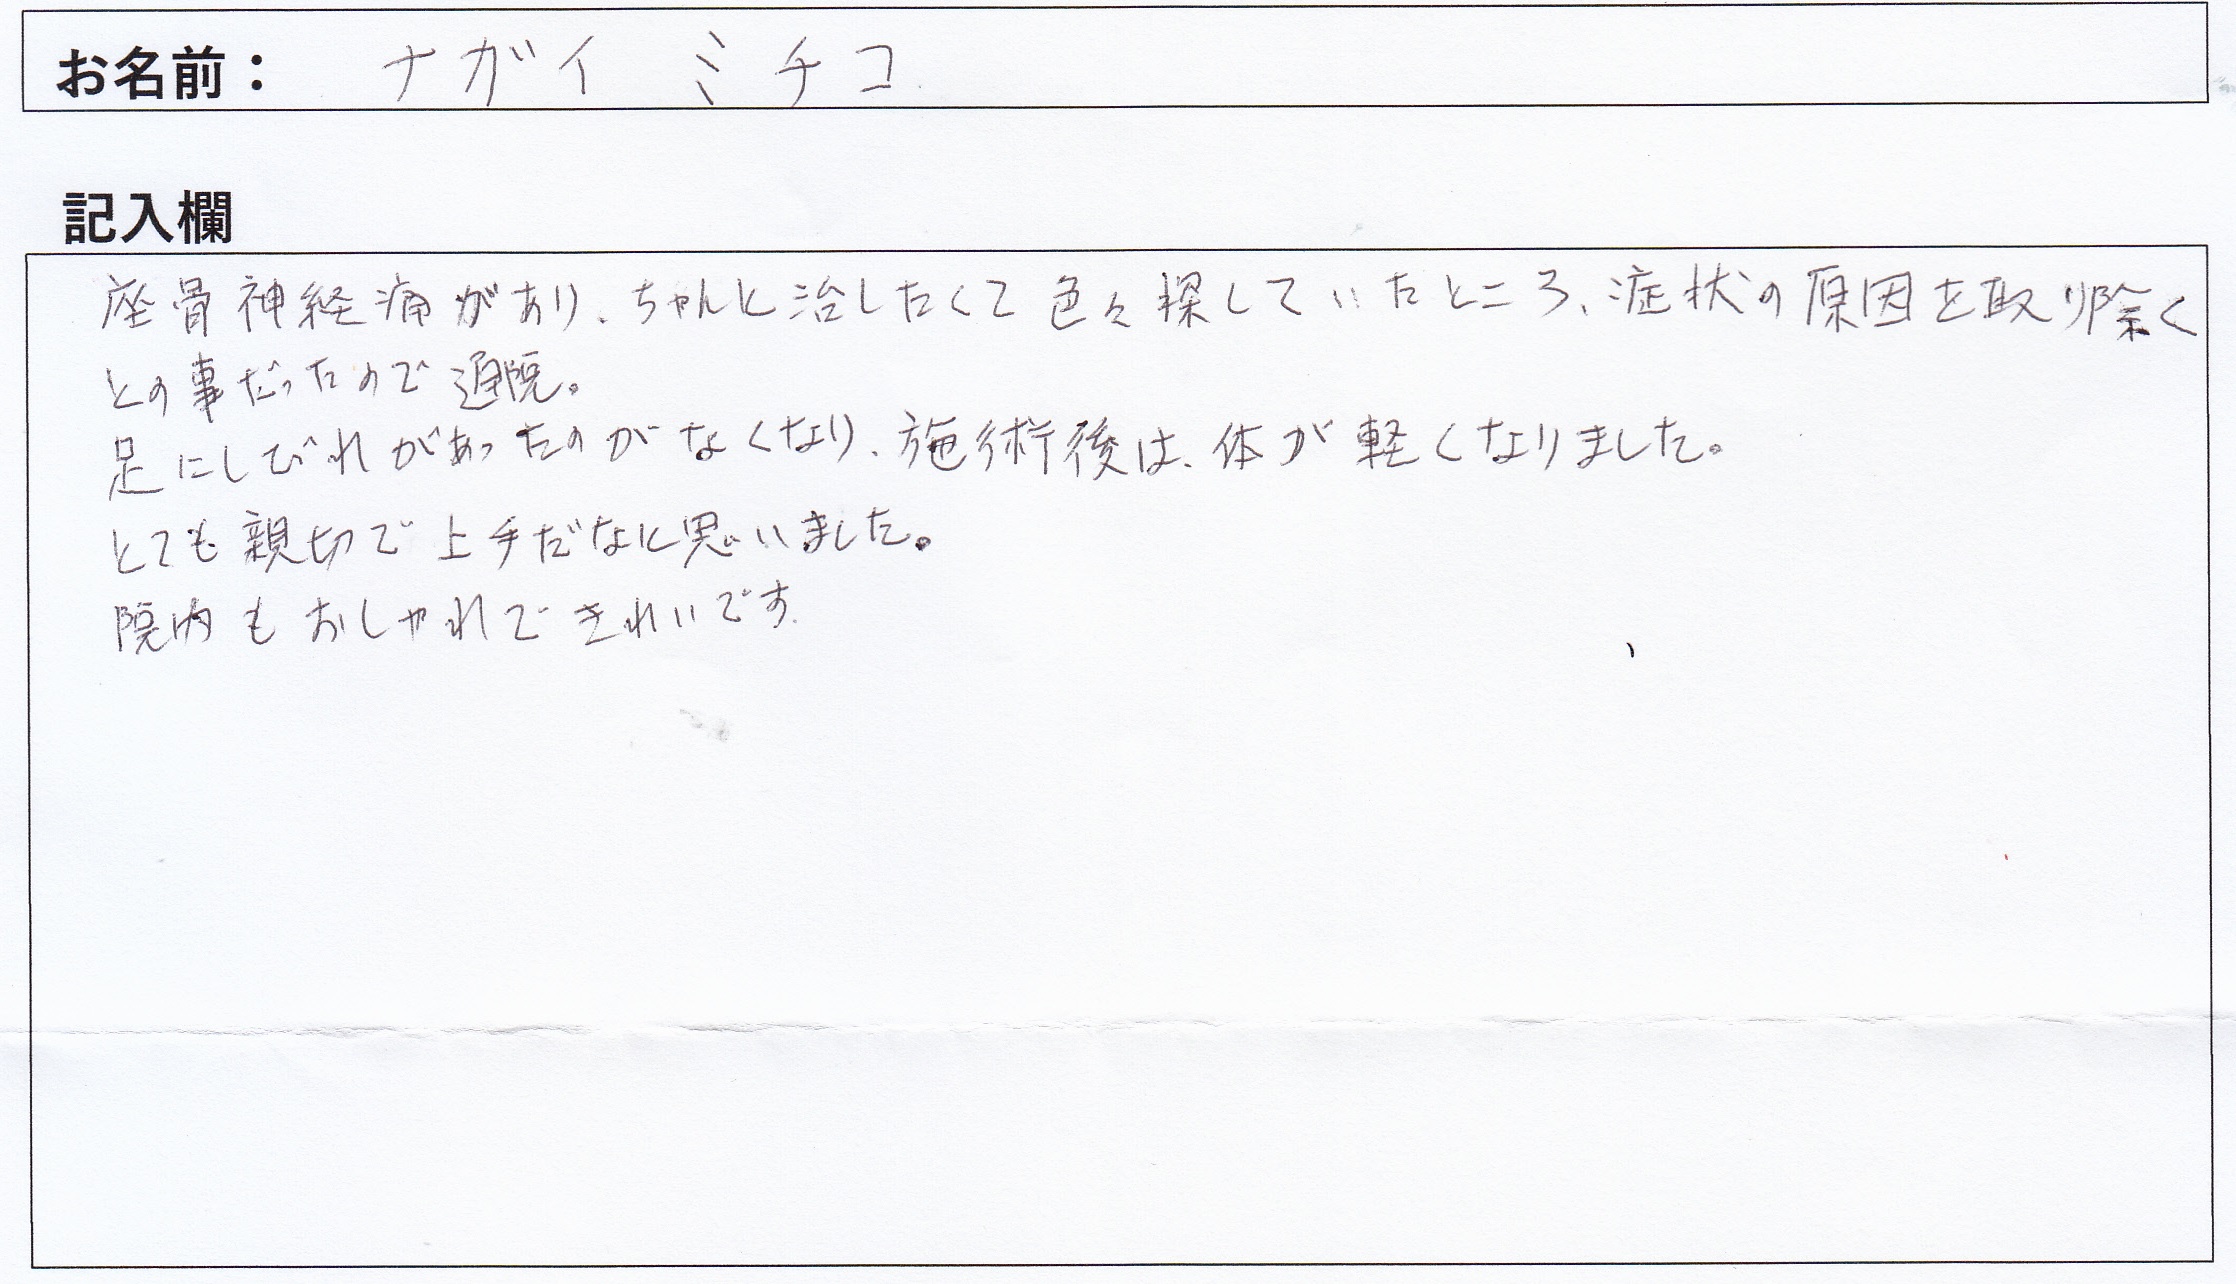 お名前： ナガイ ミチコ
記入欄
座骨神経痛があり、ちゃんと治したくて色々探していたところ、症状の原因を取り除く
との事だったので通院。
足にしびれがあったのがなくなり、施術後は、体が軽くなりました。
とても親切で上手だなと思いました。
院内もおしゃれできれいです.